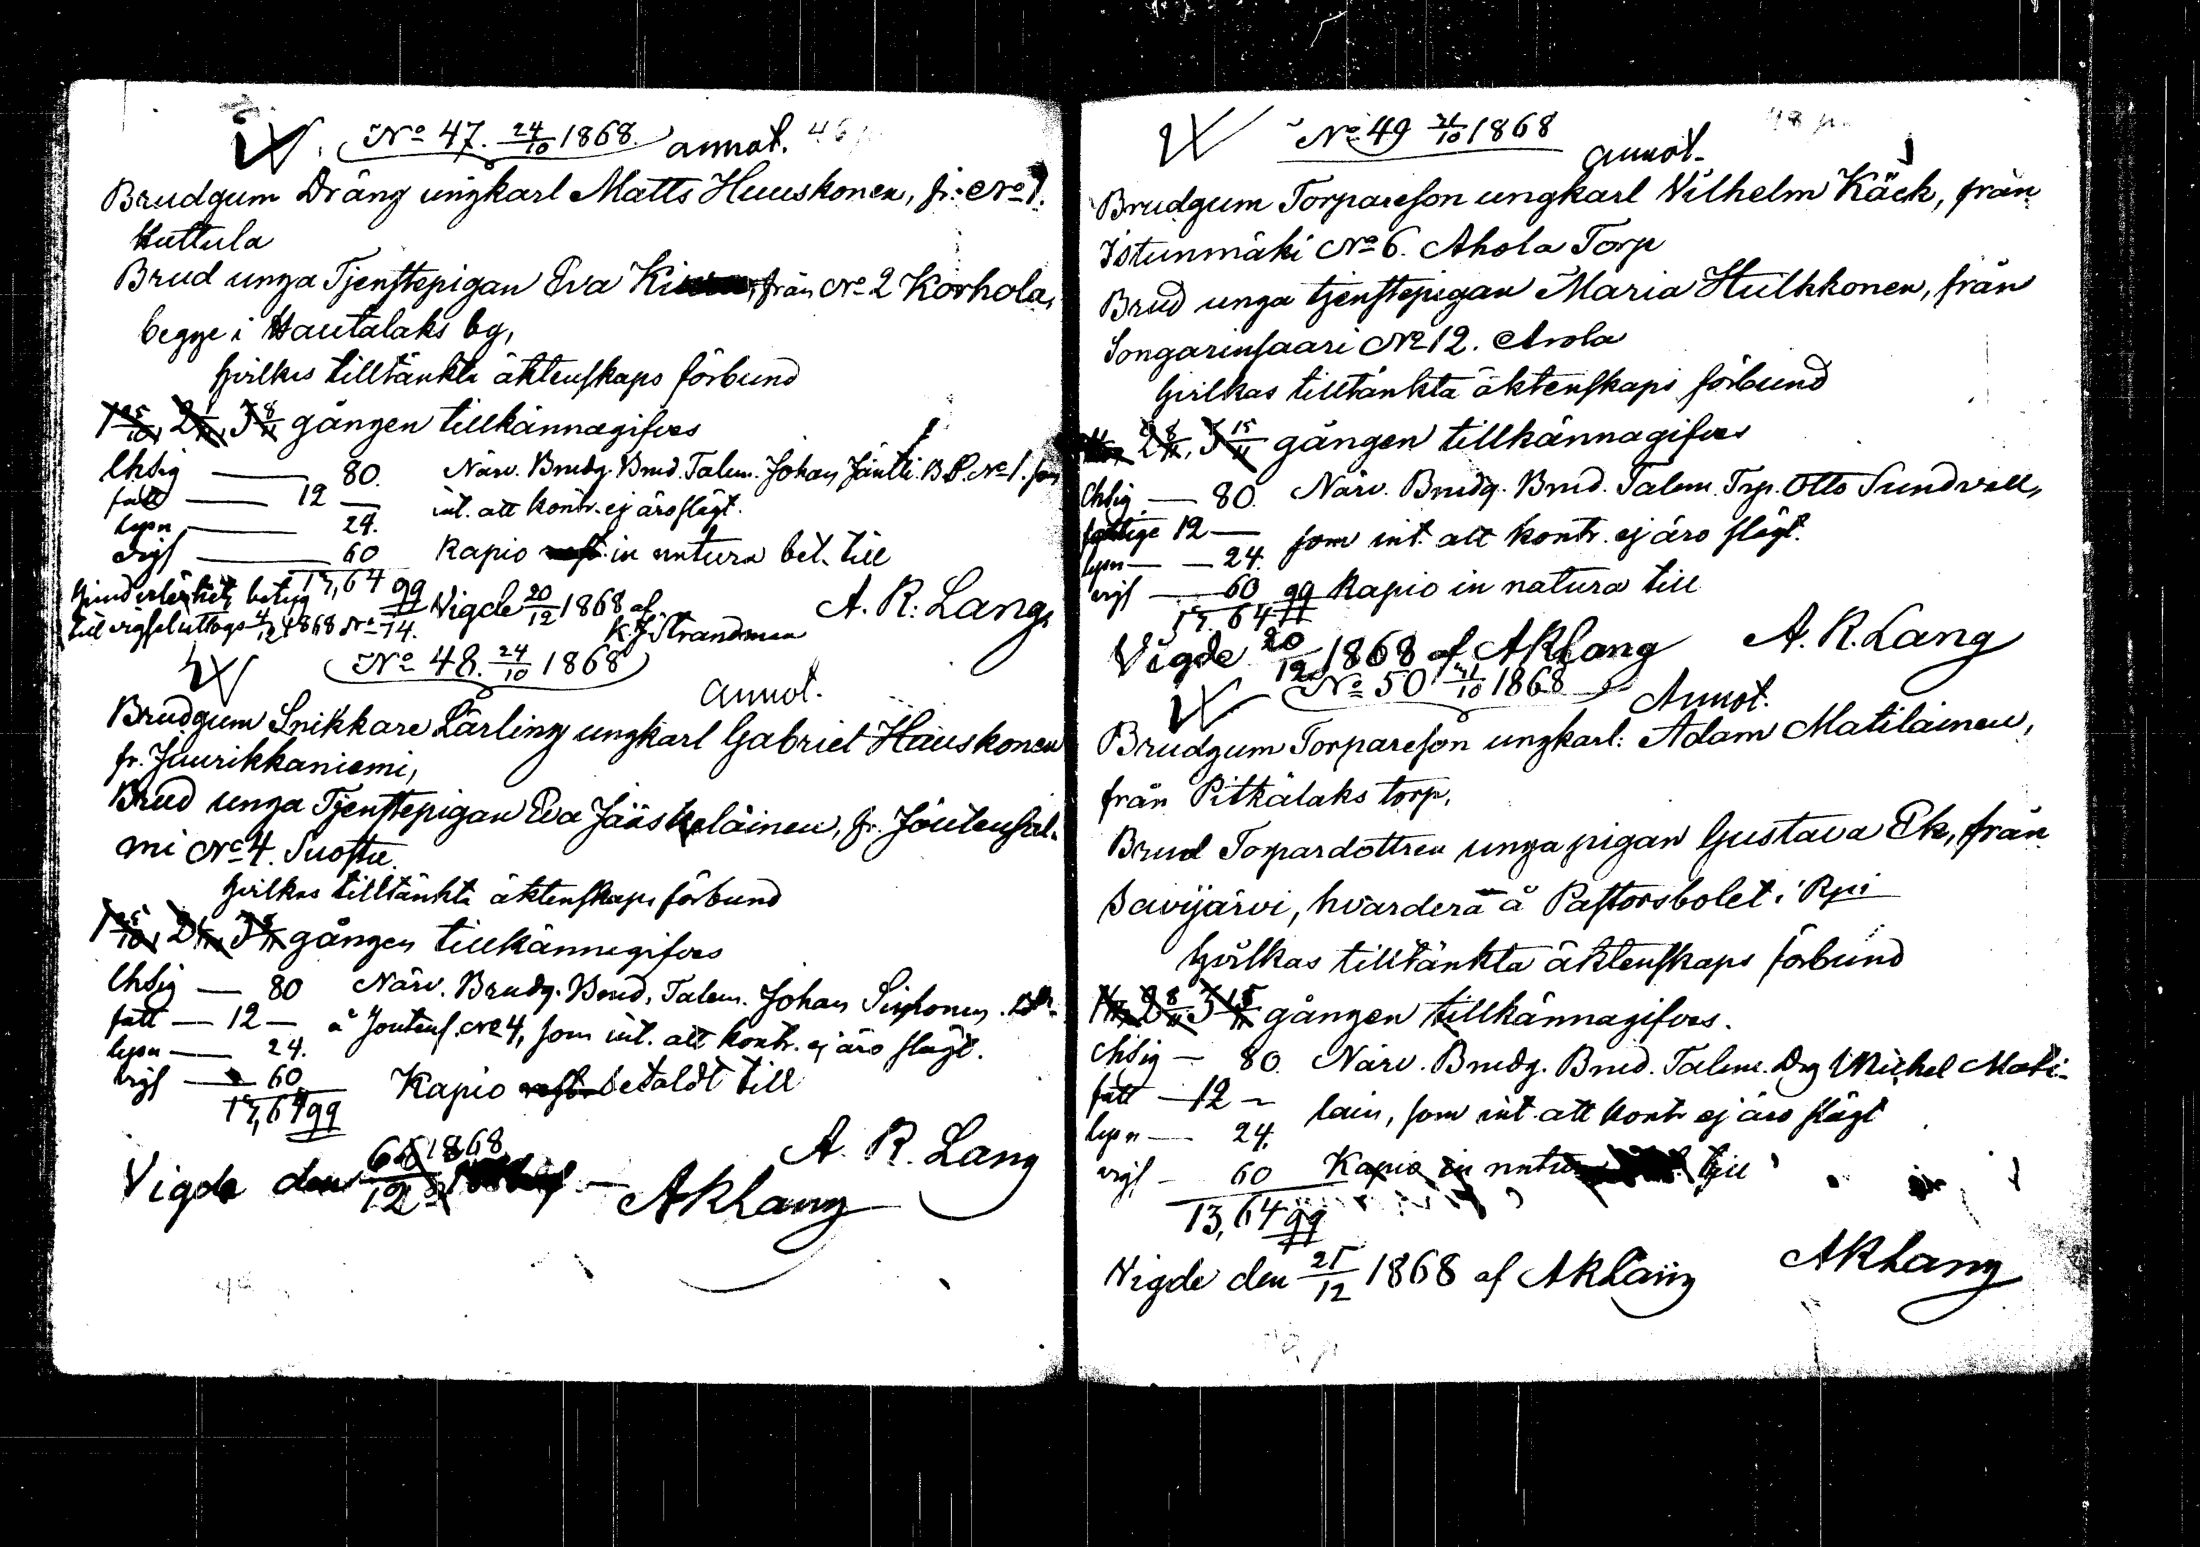 No 47. 24/10 1868. annot.
Brudgum Dräng ungkarl Matts Huuskonen, fr. No 1.
Huttula
Brud unga Tjenstepigan Eva från No 2 Korhola,
begge i Hautalaks by,
hvilkas tilltänkta äktenskaps förbund
1 25/10, 2 1/11, 3 8/11 gången tillkännagifves
Chsig — 80. Närv. Brudg. Brud. Talem. Johan Jäntti. B.S. No 1. som
fatt — 12 — int. att kontr. ej äro slägt.
lysn — 24.
vigs — 60 Kapio in natura bet. till
13,64 gg A. R. Lang
Hinderslöshets betyg Vigde 20/12 1868 af
till vigsel uttogs 4/12 1868 No 74. K J Strandman
No 48. 24/10 1868
annot.
Brudgum Snikkare Lärling ungkarl Gabriel Hauskonen
fr. Juurikkaniemi,
Brud unga Tjenstepigan Eva Jääskeläinen, fr. Joutensal-
mi No 4. Suostu
hvilkas tilltänkta äktenskaps förbund
1 25/10, 2 1/11, 3 8/11 gången tillkännagifves
Chsig — 80 Närv. Brudg. Brud. Talem. Johan
fatt — 12 — å Joutens. No 4, som int. att kontr. ej äro slägt.
lysn — 24.
vigs — 60 Kapio betaldt till
13,64 gg
A. R. Lang
Vigde den 1868 — ARLang
No 49 31/10 1868
annot.
Brudgum Torpareson ungkarl Vilhelm Käck, från
Istunmäki No 6. Ahola Torp
Brud unga tjenstepigan Maria Hulkkonen, från
Songarinsaari No 12. Avola
hvilkas tilltänkta äktenskaps förbund
2 8/11, 3 15/11 gången tillkännagifves
Chsig — 80. Närv. Brudg. Brud. Talem. Trp. Otto Sundvall,
fattige 12 — som int. att kontr. ej äro slägt.
lysn — 24.
vigs — 60 gg Kapio in natura till
13,64
Vigde 20/12 1868 af ARLang A. R. Lang
No 50 31/10 1868
Annot.
Brudgum Torpareson ungkarl: Adam Matilainen,
från Pitkälaks torp,
Brud Torpardottren unga pigan Gustava Ek, från
Savijärvi, hvardera å Pastorsbolet i Rpi
hvilkas tilltänkta äktenskaps förbund
2 8/11 3 15/11 gången tillkännagifves.
Chsig — 80. Närv. Brudg. Brud. Talem. Drg Michel Mati-
fatt — 12 — lain, som int. att kontr ej äro slägt
lysn — 24.
vigs — 60 Kapio in natura till
13,64 gg
ARLang
Vigde den 25/12 1868 af ARLang